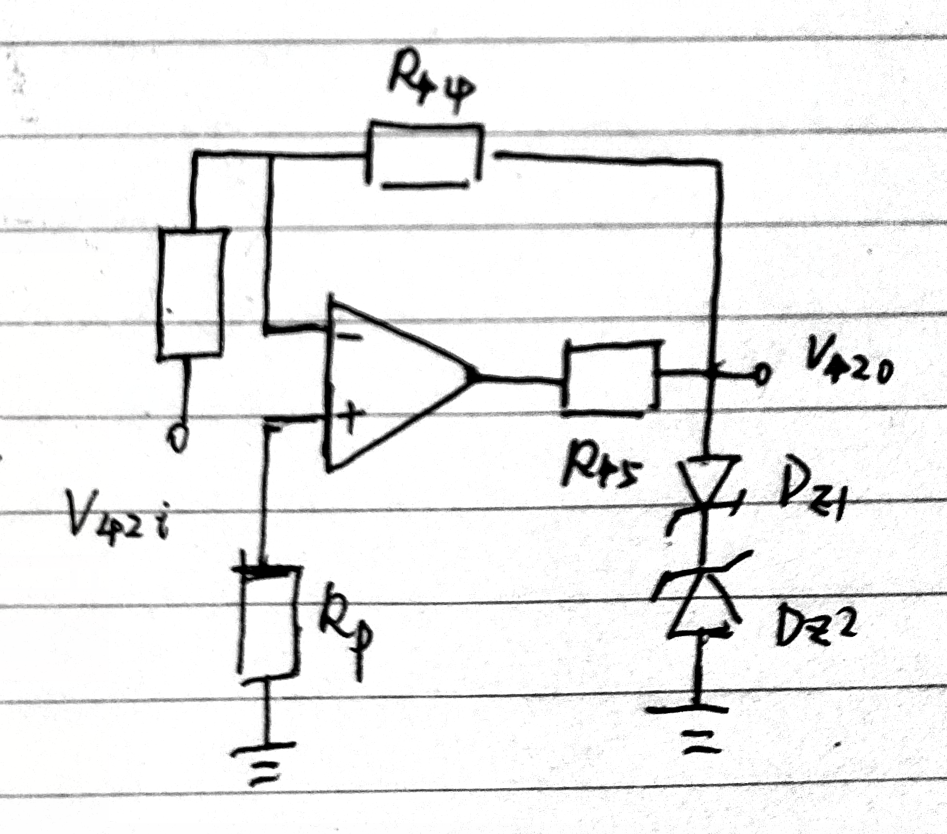 R44
−
+
V420
R45
DZ1
V42i
Rp
DZ2